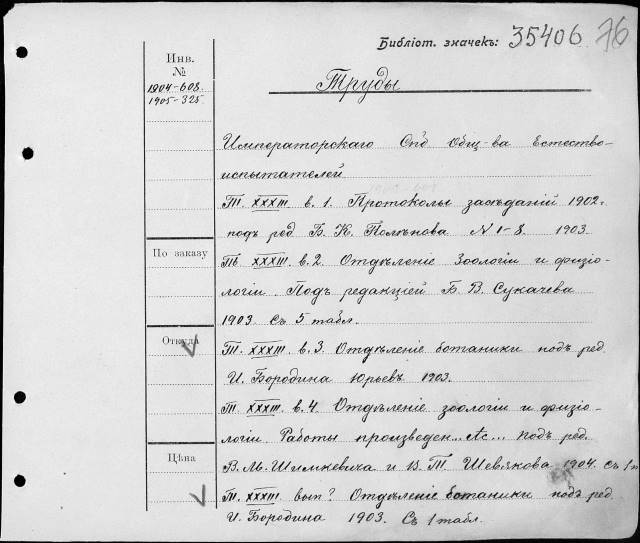 Библіот. значекъ: 35406 76
Инв.
№
1904-608.
1905-325.
Труды
Императорскаго Спб Общ-ва Естество-
испытателей
Т. XXXIII. в. 1. Протоколы засѣданій 1902 г.
подъ ред. Б. К. Полѣнова N 1-8. 1903.
По заказу
Тъ XXXIII. в. 2. Отдѣленіе Зоологіи и физіо-
логіи. Подъ редакціей Б. В. Сукачева
1903. Съ 5 табл.
Откуда
Т. XXXIII. в. 3. Отдѣленіе ботаники подъ ред.
И. Бородина Юрьевъ 1903.
Т. XXXIII. в. 4. Отдѣленіе зоологіи и физіо-
логіи. Работы произведен... подъ ред.
Цѣна
В. М. Шимкевича и В. Т. Шевякова 1904. съ 1 т
Т. XXXIII. вып? Отдѣленіе ботаники подъ ред.
И. Бородина 1903. Съ 1 табл.